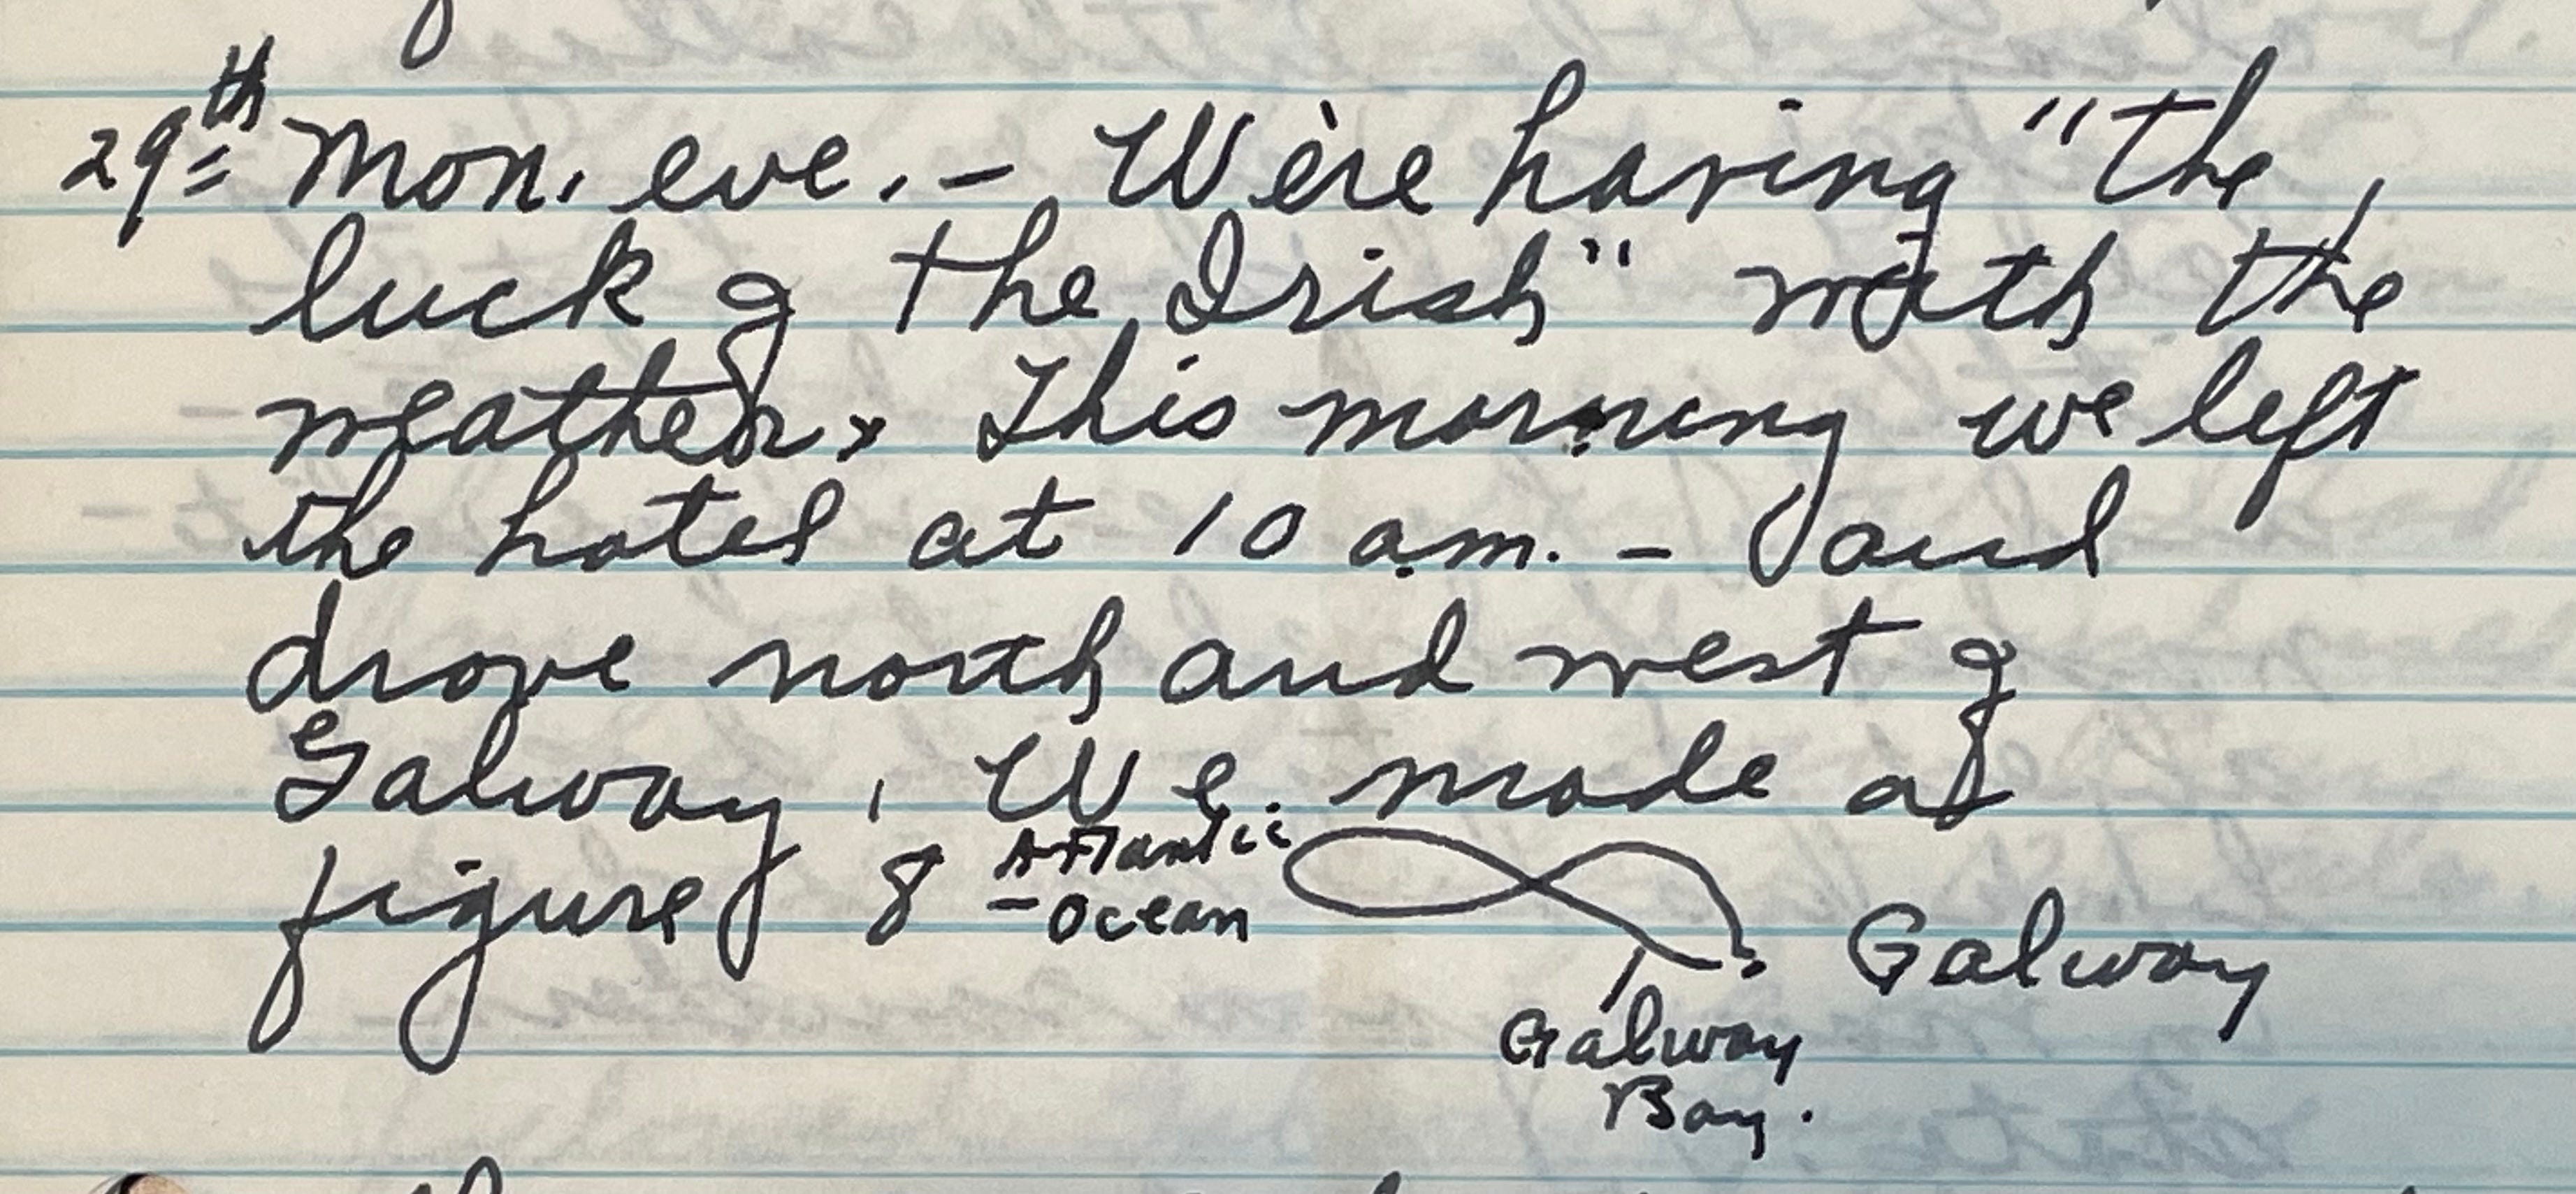 29th Mon. eve. - We're having "the
luck of the Irish" with the
weather. This morning we left
the hotel at 10 a.m. - and
drove north and west of
Galway. We made a
figure 8 Atlantic
-Ocean
Galway
Galway
Bay.